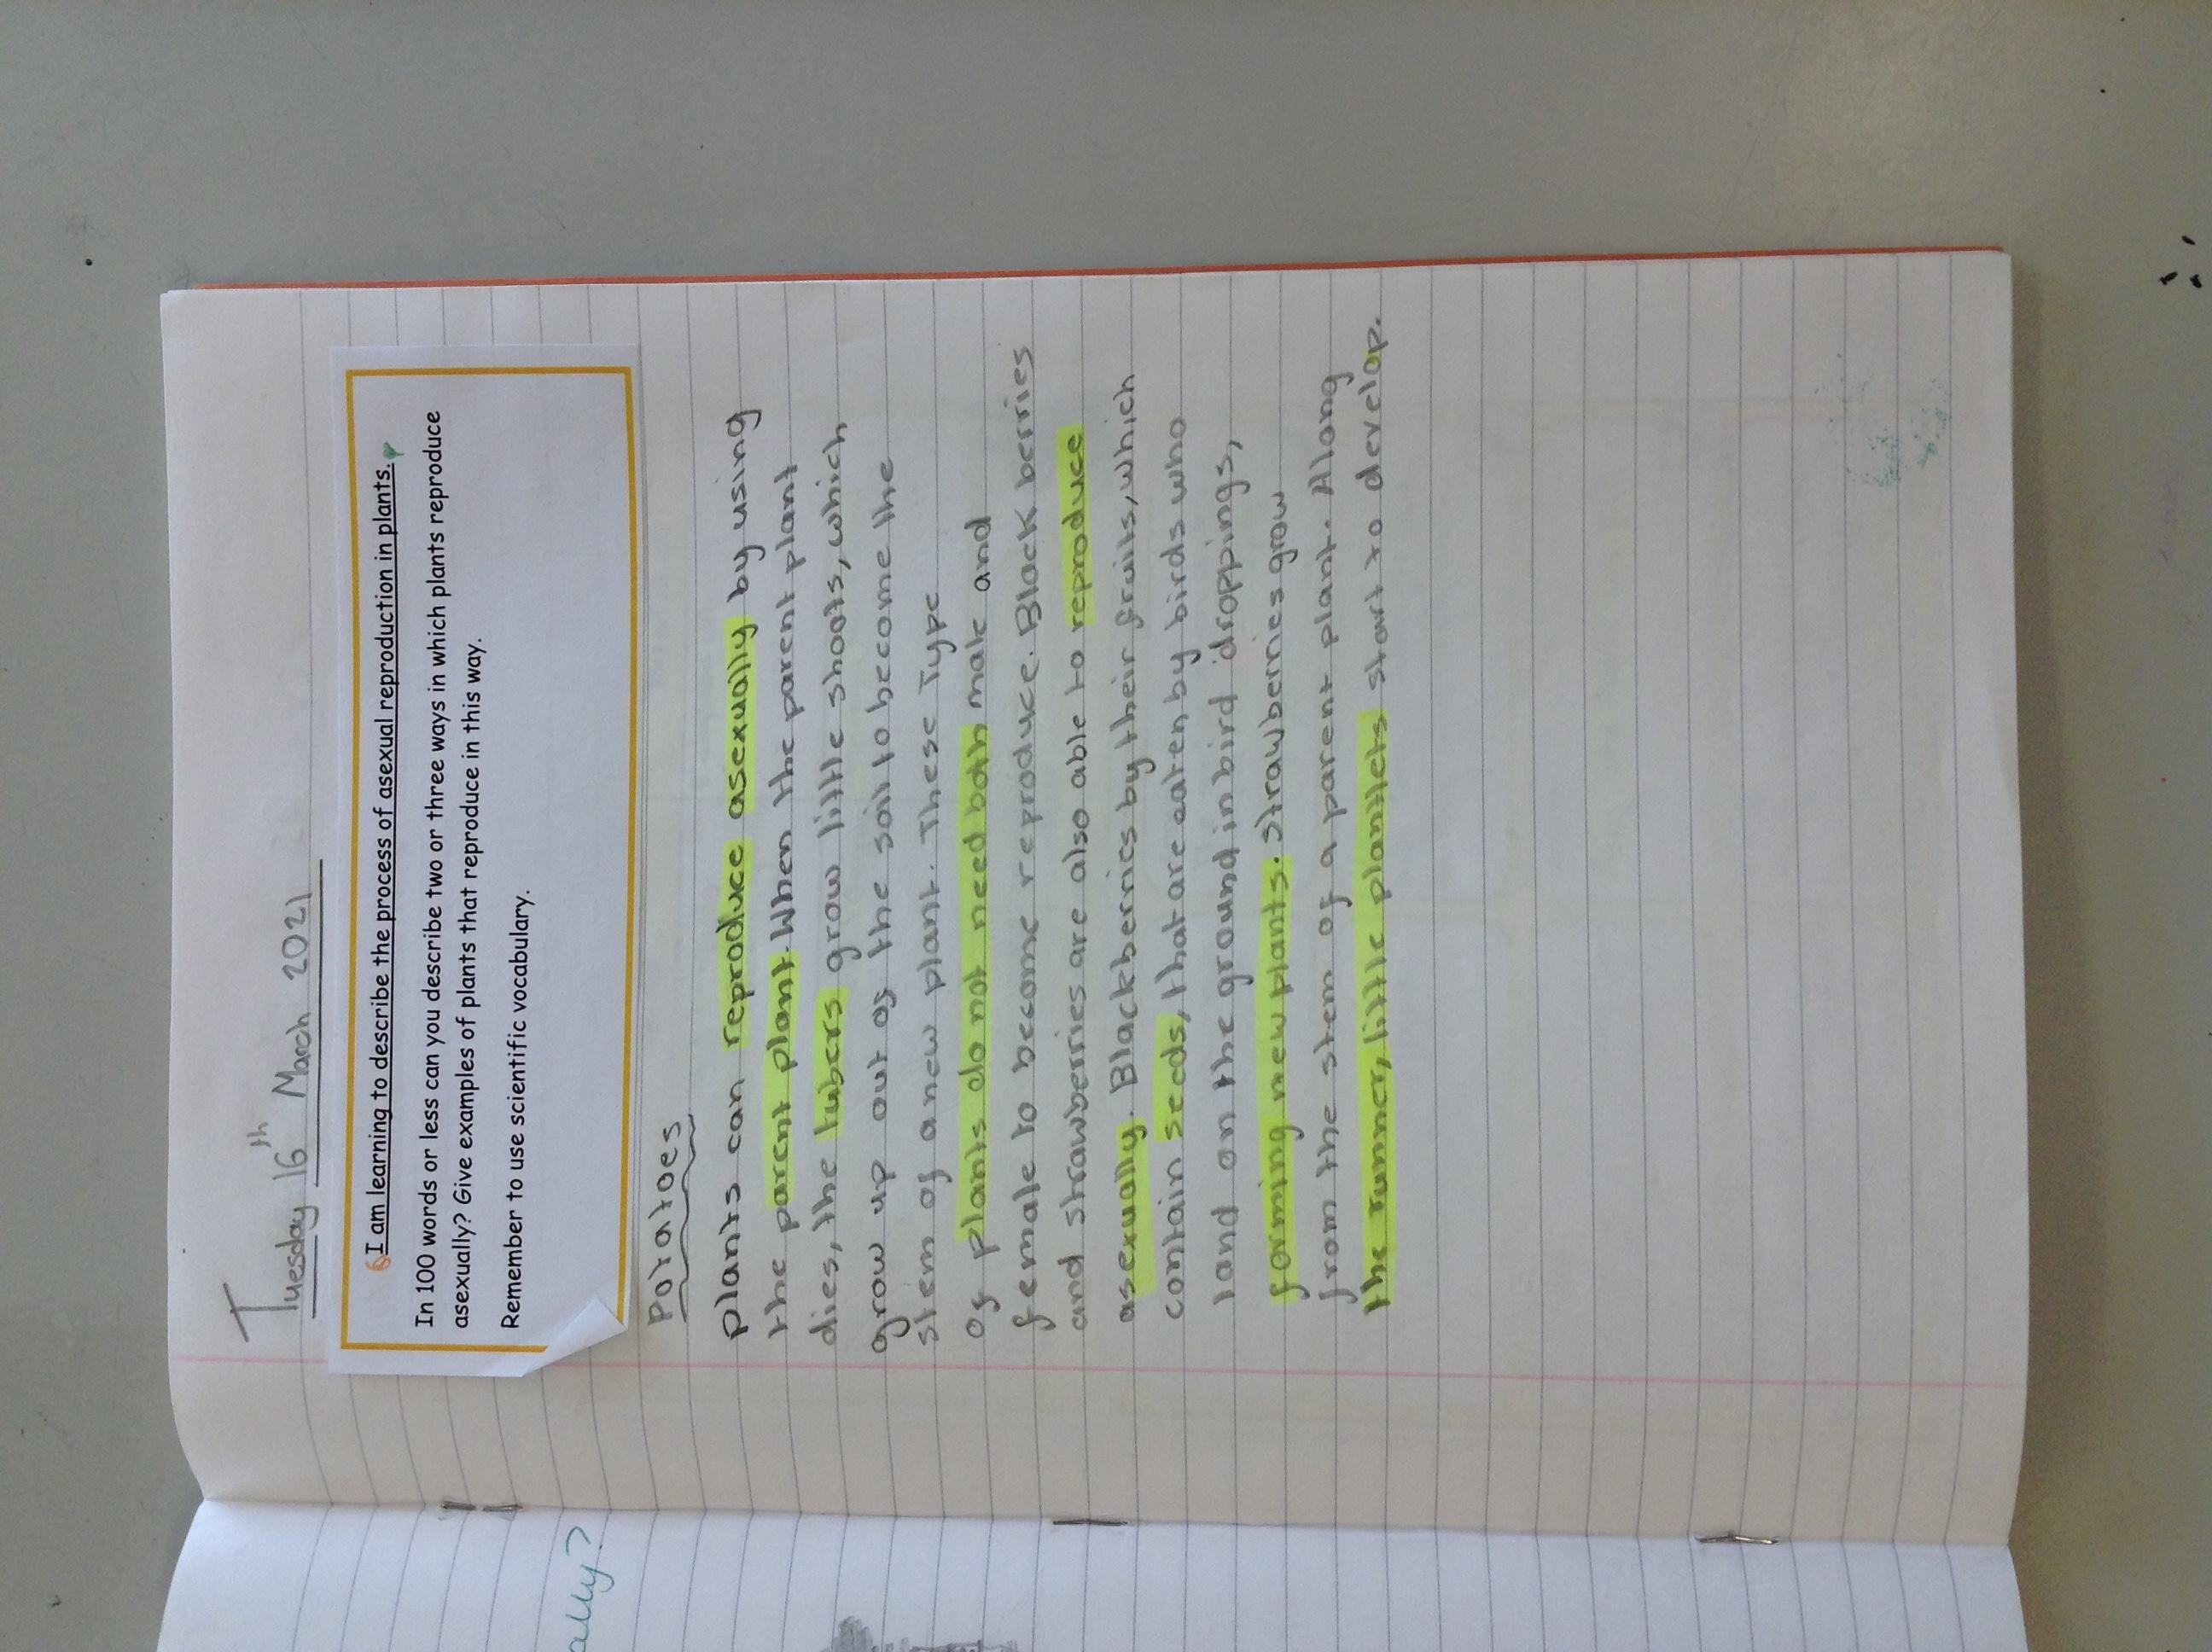 T
Tuesday 16th March 2021
I am learning to describe the process of asexual reproduction in plants.
In 100 words or less can you describe two or three ways in which plants reproduce
asexually? Give examples of plants that reproduce in this way.
Remember to use scientific vocabulary.
Potatoes
plants can reproduce asexually by using
the parent plant. When the parent plant
dies, the tubers grow little shoots, which
grow up out of the soil to become the
stem of a new plant. These Type
of plants do not need both male and
female to become reproduce. Black berries
and strawberries are also able to reproduce
asexually. Blackberries by their fruits, which
contain seeds, that are eaten by birds who
land on the ground in bird droppings,
forming new plants. Strawberries grow
from the stem of a parent plant. Along
the runner, little plantlets start to develop.
ally?